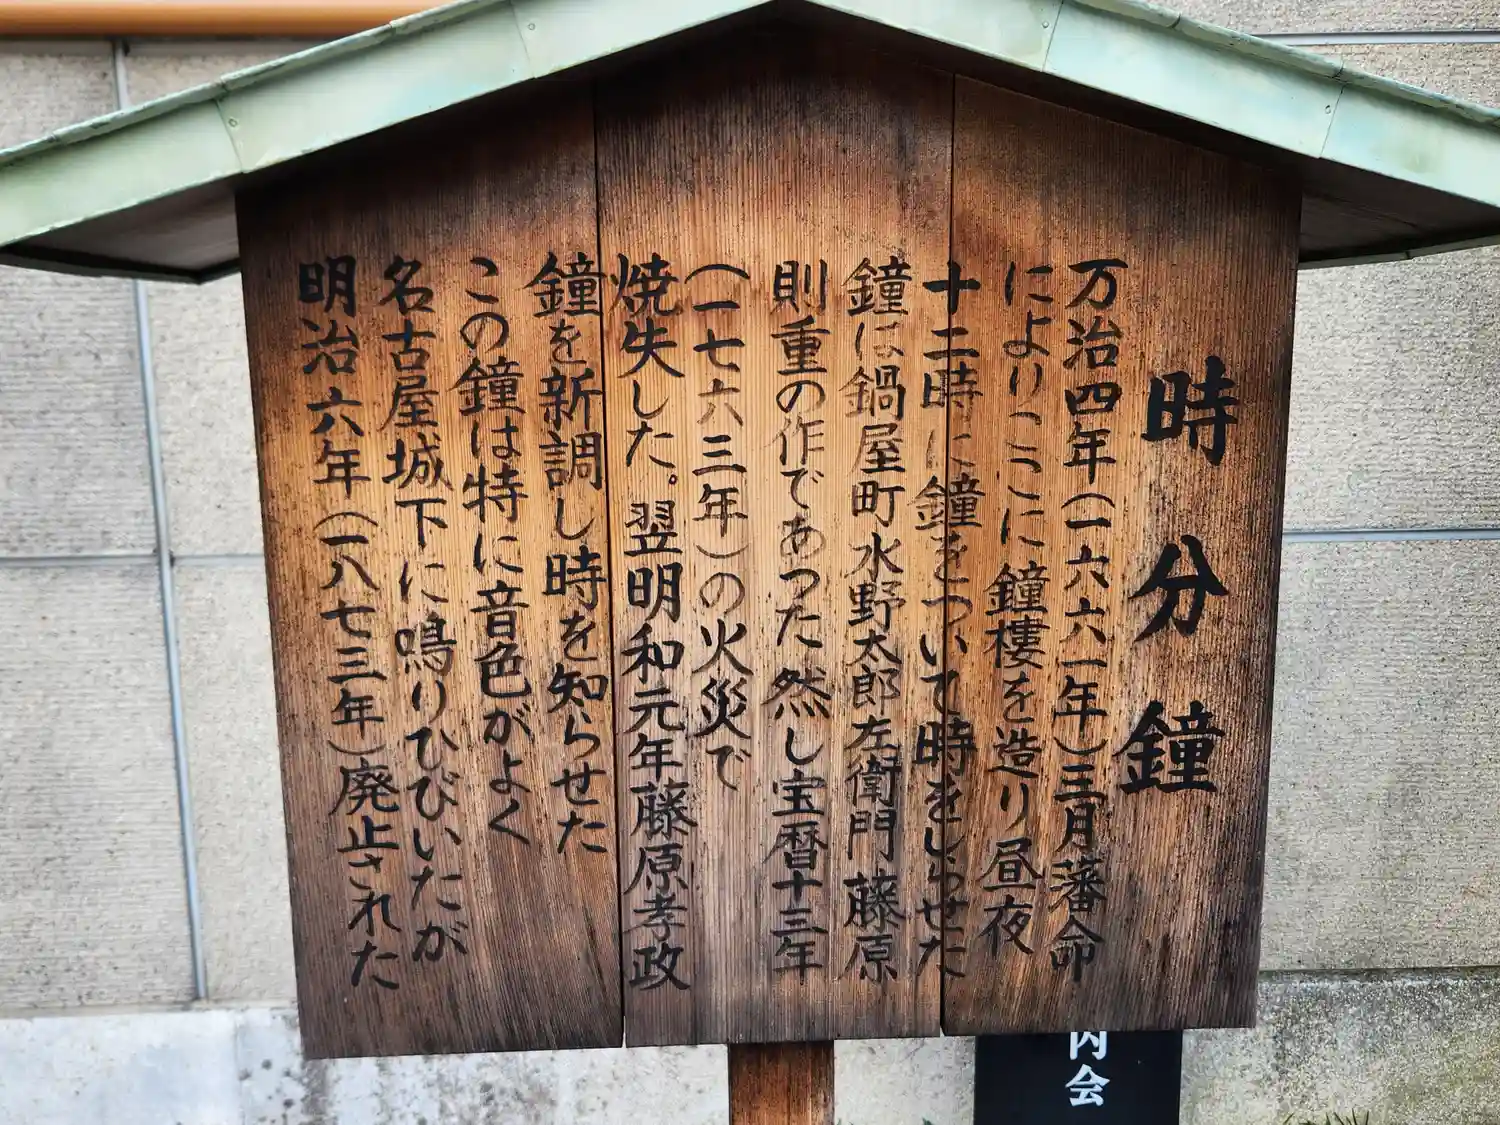 時分鐘
万治四年(一六六一年)三月藩命
によりここに鐘樓を造り昼夜
十二時に鐘をついて時をしらせた
鐘は鍋屋町水野太郎左衛門藤原
則重の作であつた然し宝暦十三年
(一七六三年)の火災で
焼失した。翌明和元年藤原孝政
鐘を新調し時を知らせた
この鐘は特に音色がよく
名古屋城下に鳴りひびいたが
明治六年(一八七三年)廃止された
内会